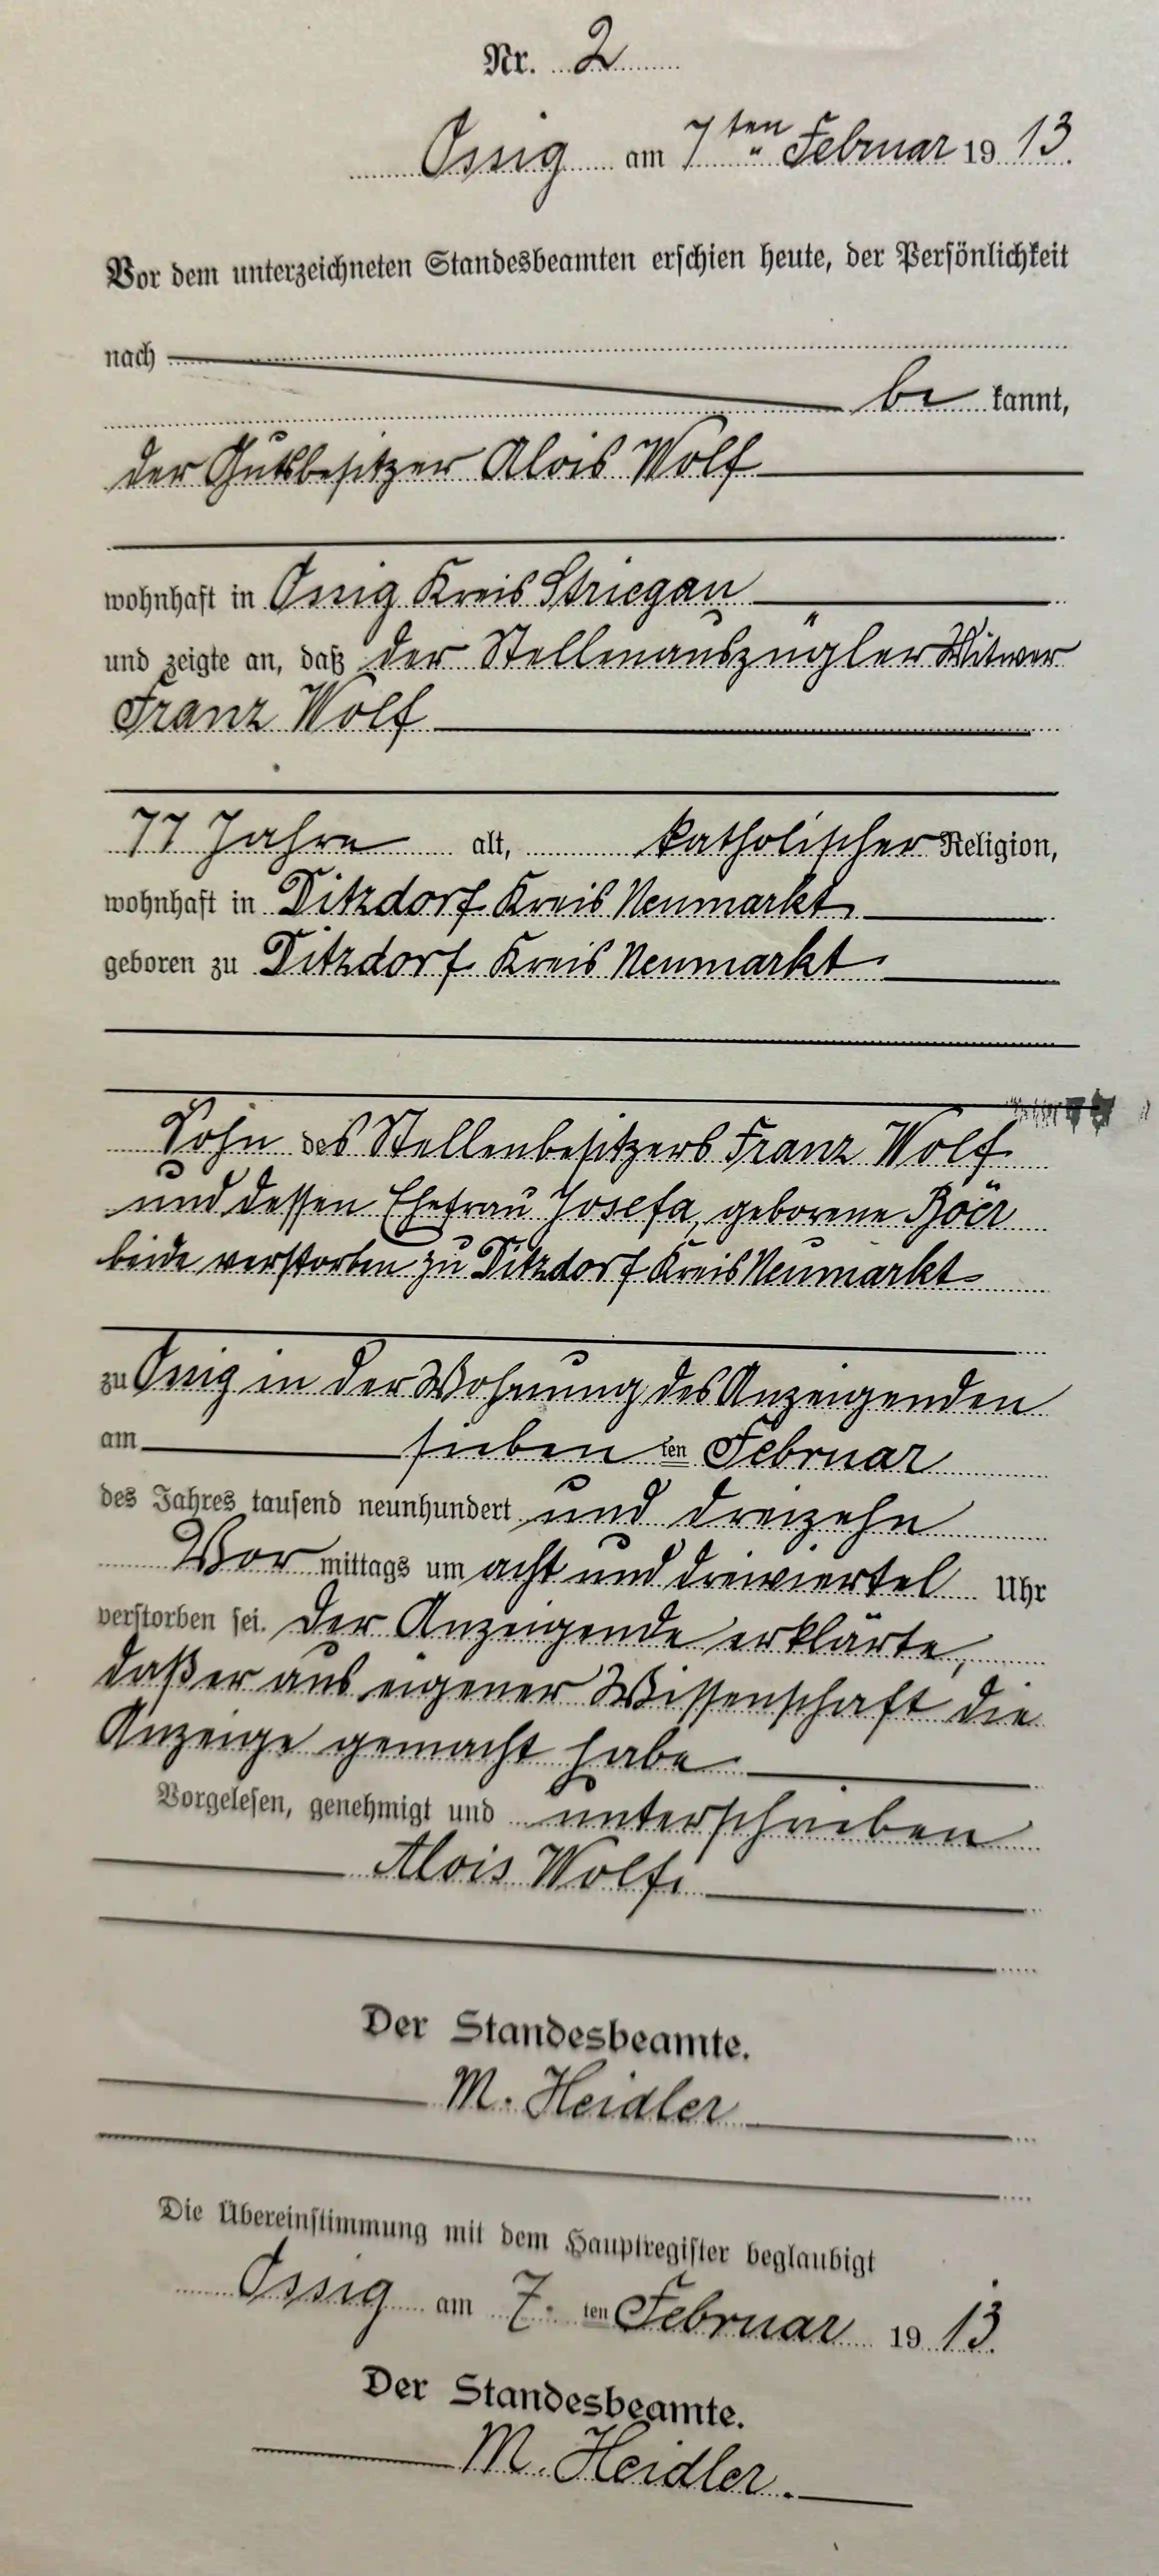 Nr. 2
Ossig am 7ten Februar 1913.
Vor dem unterzeichneten Standesbeamten erschien heute, der Persönlichkeit
nach
be kannt,
der Gutsbesitzer Alois Wolf
wohnhaft in Ossig Kreis Striegau
und zeigte an, daß der Stellenauszügler Witwer
Franz Wolf
77 Jahre alt, katholischer Religion,
wohnhaft in Ditzdorf Kreis Neumarkt
geboren zu Ditzdorf Kreis Neumarkt
Sohn des Stellenbesitzers Franz Wolf
und dessen Ehefrau Josefa, geborene
beide verstorben zu Ditzdorf Kreis Neumarkt
zu Ossig in der Wohnung des Anzeigenden
am sieben ten Februar
des Jahres tausend neunhundert und dreizehn
Vor mittags um acht und dreiviertel Uhr
verstorben sei. Der Anzeigende erklärte,
daß er aus eigener Wissenschaft die
Anzeige gemacht habe
Vorgelesen, genehmigt und unterschrieben
Alois Wolf.
Der Standesbeamte.
M. Heidler
Die Übereinstimmung mit dem Hauptregister beglaubigt
Ossig am 7. ten Februar 1913.
Der Standesbeamte.
M. Heidler.